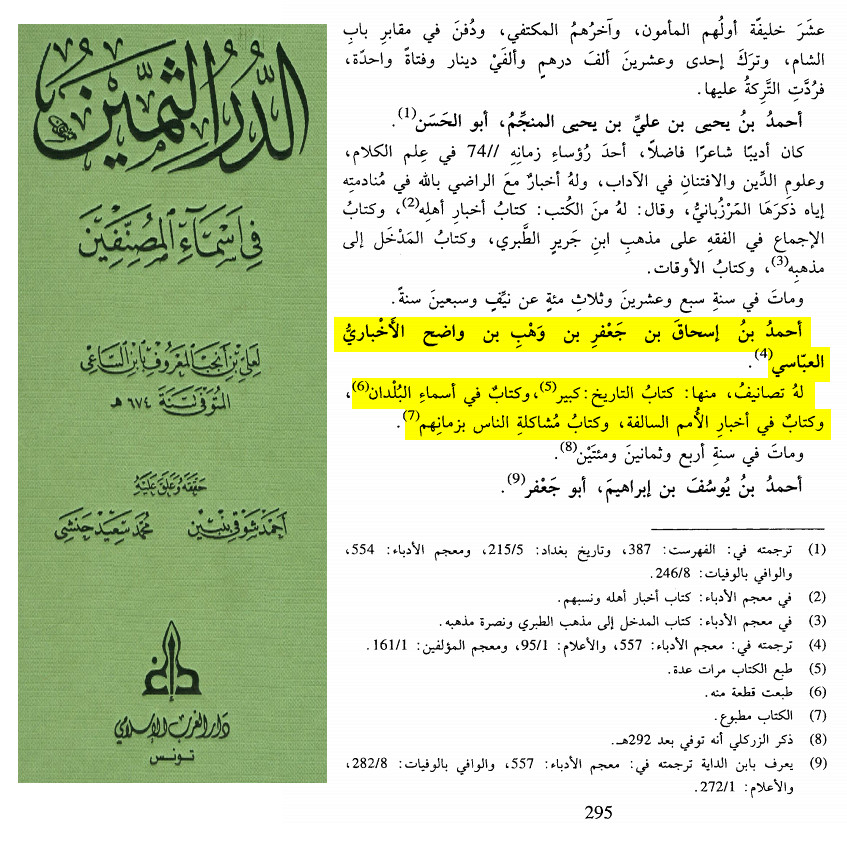 الدُّرُّ الثَّمِين
فِي أَسْمَاءِ المُصَنِّفِين
لعلي بن أنجب المعروف بابن الساعي
المتوفى سنة ٦٧٤ هـ
حققه وعلق عليه
أحمد شوقي بنبين محمد سعيد حنشي
دار الغرب الإسلامي
تونس
عشَرَ خليفَة أولُهم المأمون، وآخرُهمُ المكتفي، ودُفنَ في مقابرِ بابِ
الشام، وتركَ إحدى وعشرينَ ألفَ درهمٍ وألفَيْ دينار وفتاةً واحدًة،
فرُدَّتِ التَّرِكةُ عليها.
أحمدُ بنُ يحيى بن عليِّ بن يحيى المنجِّمُ، أبو الحَسَن(1).
كان أديبًا شاعرًا فاضلًا، أحدَ رُؤساءِ زمانِهِ //74 في عِلم الكلام،
وعلومِ الدِّين والافتنانِ في الآداب، ولهُ أخبارٌ معَ الراضي بالله في مُنادمتِه
إياه ذكرَهَا المَرْزُبانيُّ، وقال: لهُ منَ الكُتب: كتابُ أخبارِ أهلِه(2)، وكتابُ
الإجماع في الفقهِ على مذهبِ ابنِ جَريرٍ الطَّبري، وكتابُ المَدْخَل إلى
مذهبِه(3)، وكتابُ الأوقات.
وماتَ في سنةِ سبع وعشرينَ وثلاثِ مئةٍ عن نَيِّفٍ وسبعينَ سنةً.
أحمدُ بنُ إسحاقَ بن جَعْفرِ بن وَهْبِ بن واضح الأَخْباريُّ
العبّاسي(4).
لهُ تصانيفُ، منها: كتابُ التاريخ: كبير(5)، وكتابٌ في أسماءِ البُلْدان(6)،
وكتابٌ في أخبارِ الأُمم السالفة، وكتابُ مُشاكلةِ الناس بزمانِهم(7).
وماتَ في سنةِ أربع وثمانينَ ومئتَيْن(8).
أحمدُ بنُ يُوسُفَ بن إبراهيمَ، أبو جَعْفر(9).
(1) ترجمته في: الفهرست: 387، وتاريخ بغداد: 215/5، ومعجم الأدباء: 554،
والوافي بالوفيات: 246/8.
(2) في معجم الأدباء: كتاب أخبار أهله ونسبهم.
(3) في معجم الأدباء: كتاب المدخل إلى مذهب الطبري ونصرة مذهبه.
(4) ترجمته في: معجم الأدباء: 557، والأعلام: 95/1، ومعجم المؤلفين: 161/1.
(5) طبع الكتاب مرات عدة.
(6) طبعت قطعة منه.
(7) الكتاب مطبوع.
(8) ذكر الزركلي أنه توفي بعد 292هـ.
(9) يعرف بابن الداية ترجمته في: معجم الأدباء: 557، والوافي بالوفيات: 282/8،
والأعلام: 272/1.
295